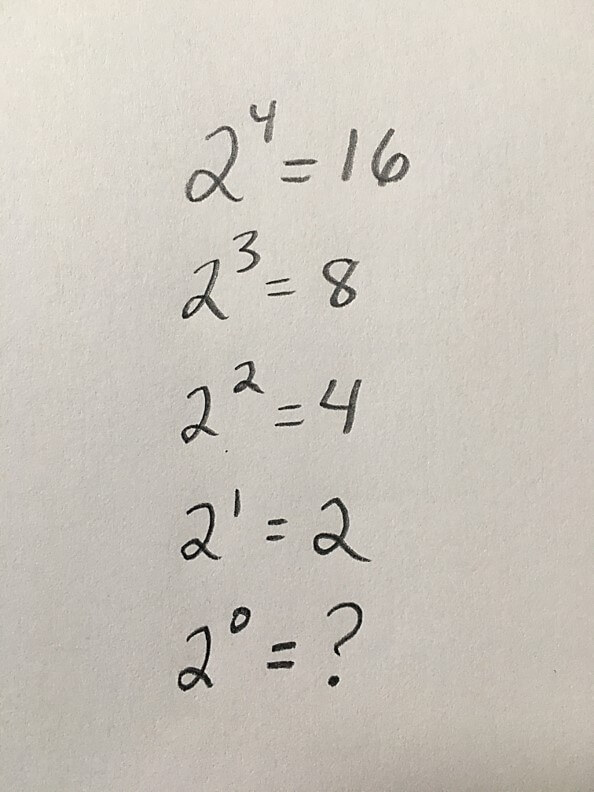 2⁴ = 16
2³ = 8
2² = 4
2¹ = 2
2⁰ = ?